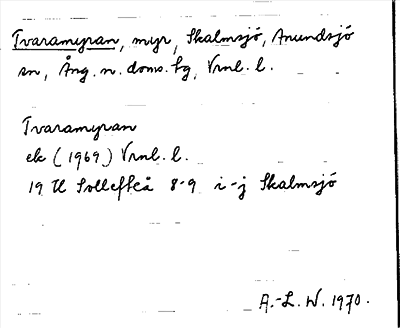 Tvaramyran, myr, Skalmsjö, Anundsjö
sn, Ång. n. doms. hg, Vrnl. l.
Tvaramyran
ek (1969) Vrnl. l.
19 H Sollefteå 8-9 i-j Skalmsjö
A.-L. W. 1970.